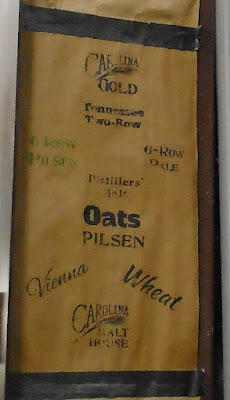 CAROLINA
GOLD
Tennessee
Two-Row
6-ROW
PILSEN
6-ROW
PALE
Distillers'
Malt
Oats
PILSEN
Vienna
Wheat
CAROLINA
MALT
HOUSE